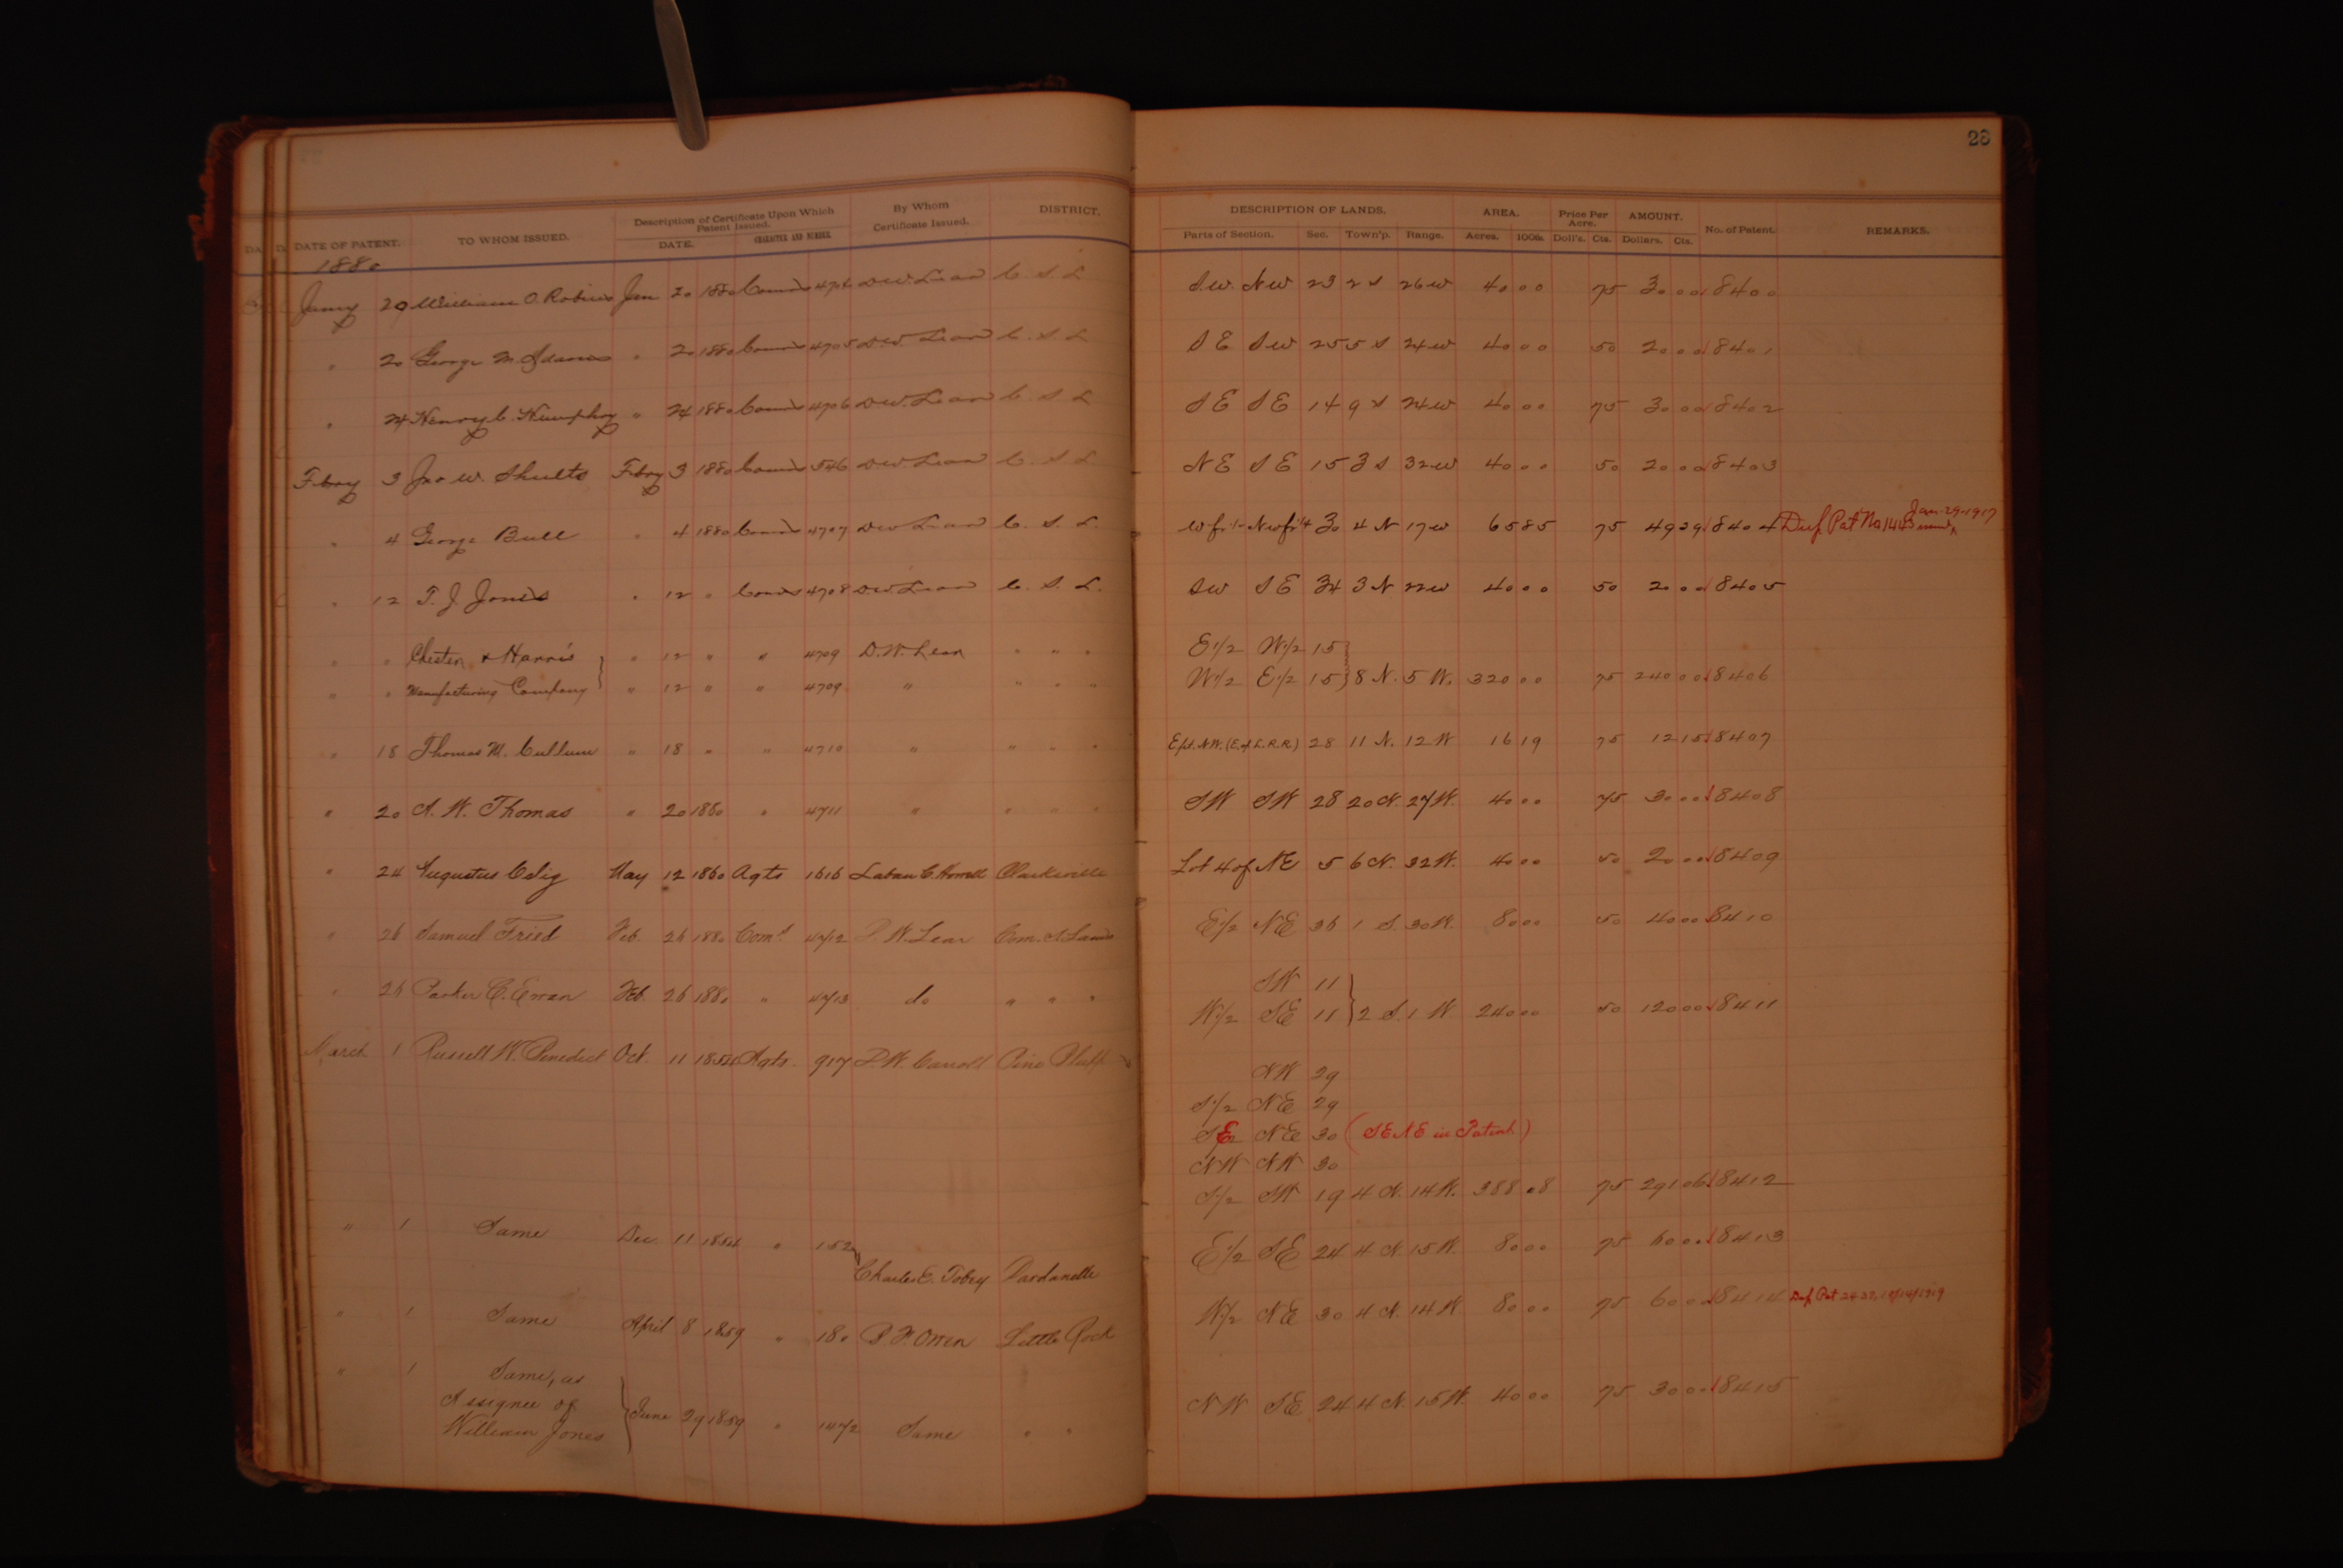 28
DATE OF PATENT. TO WHOM ISSUED. Description of Certificate Upon Which Patent Issued. DATE. CHARACTER AND NUMBER. By Whom Certificate Issued. DISTRICT. DESCRIPTION OF LANDS. Parts of Section. Sec. Town'p. Range. AREA. Acres. 100ths Price Per Acre. Doll's. Cts. AMOUNT. Dollars. Cts. No. of Patent. REMARKS.
1880
Jany 20 William O. Robins Jan 20 1880 D.W. Lear C. S. L S.W. NW 23 2 S 26 W 40 00 75 30 00 8400
" 20 George M. Adams " 20 1880 4705 D.W. Lear C. S. L SE SW 25 5 S 24 W 40 00 50 20 00 8401
" 24 Henry C. Humphry " 24 1880 4706 D.W. Lear C. S. L SE SE 14 9 S 24 W 40 00 75 30 00 8402
Febry 3 Jno W. Shults Febry 3 1880 546 D.W. Lear C. S. L NE SE 15 3 S 32 W 40 00 50 20 00 8403
" 4 George Bull " 4 1880 4707 D.W. Lear C. S. L. 30 4 N 17 W 65 85 75 49 39 8404 Dup. Pat. No Jan-29-1917
" 12 T. J. Jones " 12 " 4708 D.W. Lear C. S. L. SW SE 34 3 N 22 W 40 00 50 20 00 8405
" " Chester & Harris " 12 " " 4709 D.W. Lear " " " E1/2 W1/2 15
" " Manufacturing Company " 12 " " 4709 " " " " W1/2 E1/2 15 8 N. 5 W. 320 00 75 240 00 8406
" 18 Thomas M. Cullum " 18 " " 4710 " " " " E pt. NW. (E. of L.R.R.) 28 11 N. 12 W 16 19 75 12 15 8407
" 20 A. W. Thomas " 20 1880 " 4711 " " " " SW SW 28 20 N. 27 W. 40 00 75 30 00 8408
" 24 Augustus May 12 1860 Agts 1616 Laban C. Howell Clarksville Lot 4 of NE 5 6 N. 32 W. 40 00 50 20 00 8409
" 26 Samuel Fried Feb. 26 1880 Coms 4712 D. W. Lear Com. S. Lands E1/2 NE 36 1 S. 30 W. 80 00 50 40 00 8410
" 26 Parker C. Feb. 26 1880 " 4713 do " " " SW 11
W1/2 SE 11 2 S. 1 W 240 00 50 120 00 8411
March 1 Russell W. Benedict Oct. 11 1854 Agts. 917 D. W. Carroll Pine Bluff NW 29
S1/2 NE 29
SE NE 30 (SE NE in Patent.)
NW NW 30
S1/2 SW 19 4 N. 14 W. 388 08 75 291 06 8412
" 1 Same Dec. 11 1854 " 152 Charles E. Tobey Dardanelle E1/2 SE 24 4 N. 15 W. 80 00 75 60 00 8413
" 1 Same April 8 1859 " 180 Little Rock W1/2 NE 30 4 N. 14 W 80 00 75 60 00 8414 Dup Pat
" 1 Same, as
Assignee of
William Jones June 29 1859 " 1472 Same " " NW SE 24 4 N. 15 W. 40 00 75 30 00 8415